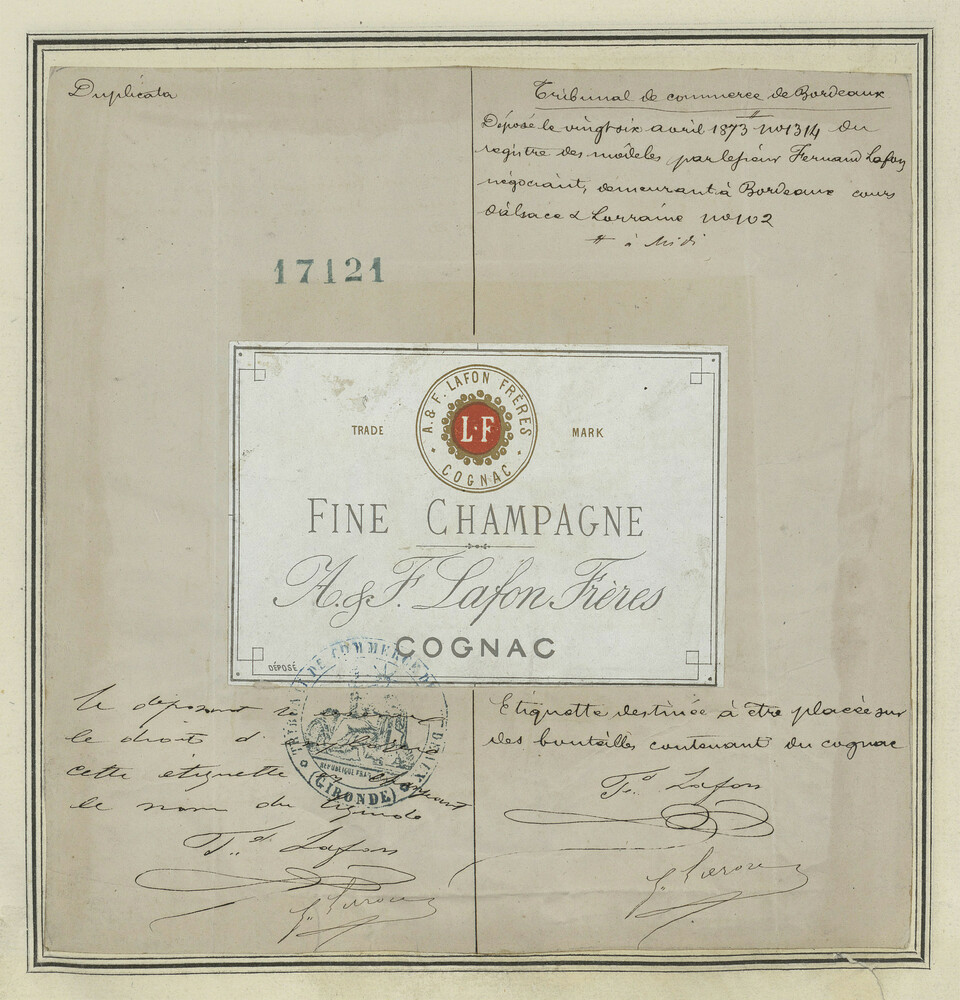 Duplicata
Tribunal de commerce de Bordeaux
Déposé le vingt six avril 1873 # no 1314 du
registre des modèles par le sieur Fernand Lafon
négociant, demeurant à Bordeaux cours
d'alsace & Lorraine no 102
# à Midi
17121
A. & F. LAFON FRÈRES
L·F
COGNAC
TRADE MARK
FINE CHAMPAGNE
A. & F. Lafon Frères
COGNAC
DÉPOSÉ
TRIBUNAL DE COMMERCE DE
RÉPUBLIQUE
(GIRONDE)
Le déposant
le droit d'
cette étiquette en changeant
le nom du
F.d Lafon
Etiquette destinée à être placée sur
des bouteilles contenant du cognac
F.d Lafon